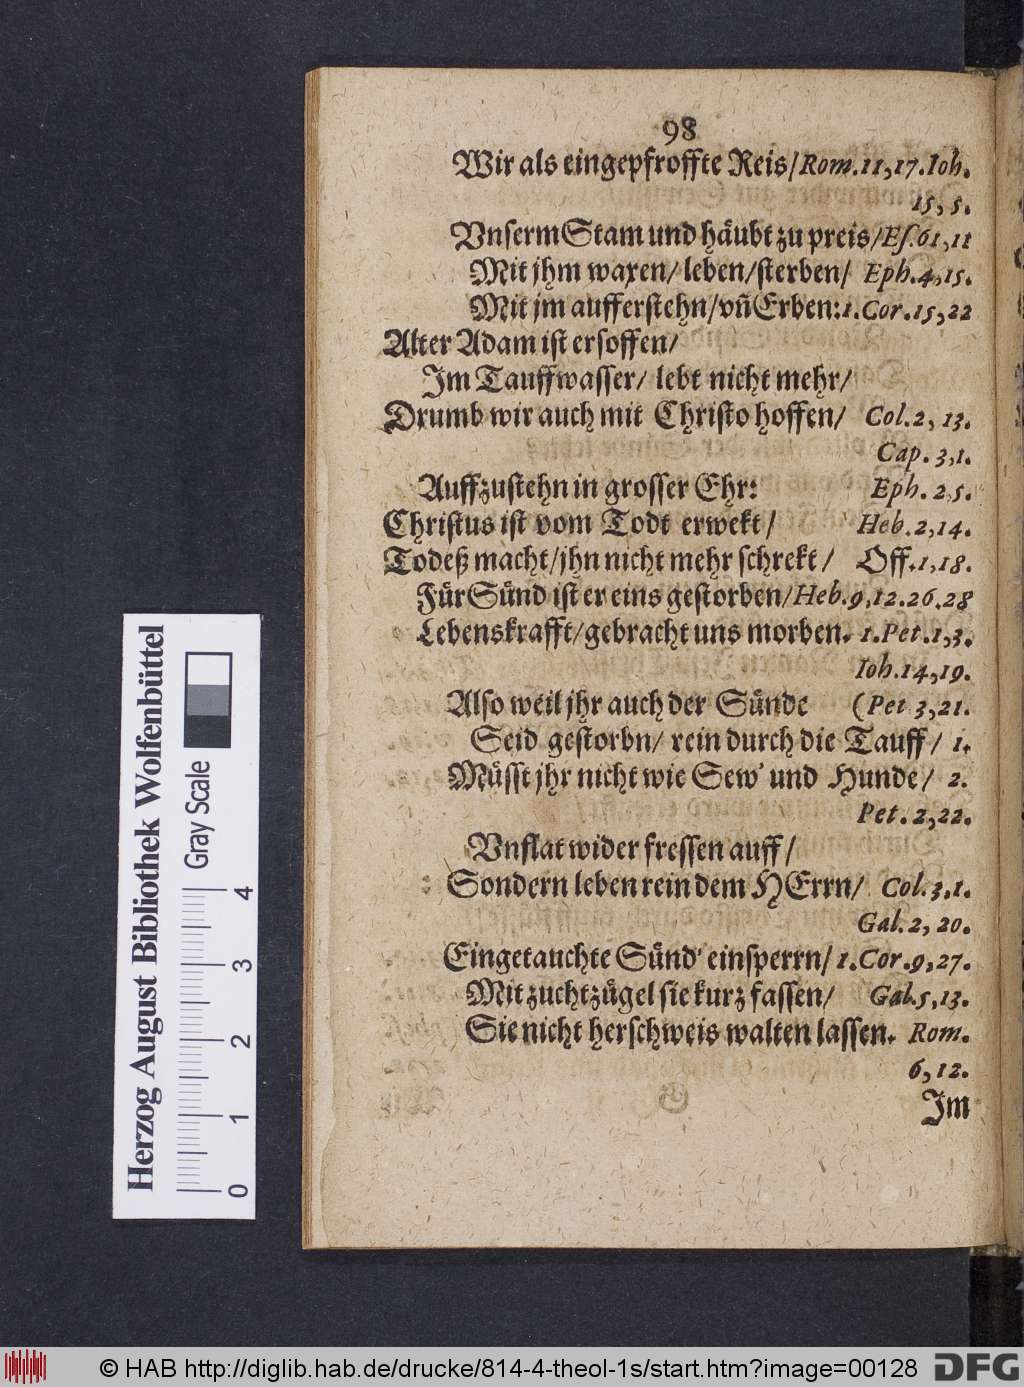 98
Wir als eingepfroffte Reis/ Rom. 11, 17. Ioh.
15, 5.
Vnserm Stam und häubt zu preis/ Es. 61, 11
Mit jhm waxen/ leben/ sterben/ Eph. 4, 15.
Mit jm aufferstehn/ vñ Erben: 1. Cor. 15, 22
Alter Adam ist ersoffen/
Im Tauffwasser/ lebt nicht mehr/
Drumb wir auch mit Christo hoffen/ Col. 2, 13.
Cap. 3, 1.
Auffzustehn in grosser Ehr: Eph. 2, 5.
Christus ist vom Todt erwekt/ Heb. 2, 14.
Todeß macht/ jhn nicht mehr schrekt/ Off. 1, 18.
Für Sünd ist er eins gestorben/ Heb. 9, 12. 26. 28
Lebenskrafft/ gebracht uns worben. 1. Pet. 1, 3.
Ioh. 14, 19.
Also weil jhr auch der Sünde (Pet 3, 21.
Seid gestorbn/ rein durch die Tauff/ 1.
Müsst jhr nicht wie Sew' und Hunde/ 2.
Pet. 2, 22.
Vnflat wider fressen auff/
Sondern leben rein dem HErrn/ Col. 3, 1.
Gal. 2, 20.
Eingetauchte Sünd' einsperrn/ 1. Cor. 9, 27.
Mit zuchtzügel sie kurz fassen/ Gal. 5, 13.
Sie nicht herschweis walten lassen. Rom.
6, 12.
Im
Herzog August Bibliothek Wolfenbüttel
Gray Scale
0 1 2 3 4
© HAB http://diglib.hab.de/drucke/814-4-theol-1s/start.htm?image=00128
DFG